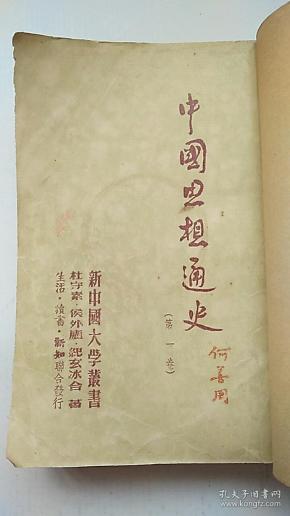 中國思想通史
(第一卷)
何善周
新中國大學叢書
杜守素·侯外廬·紀玄冰合著
生活·讀書·新知聯合發行
孔夫子旧书网